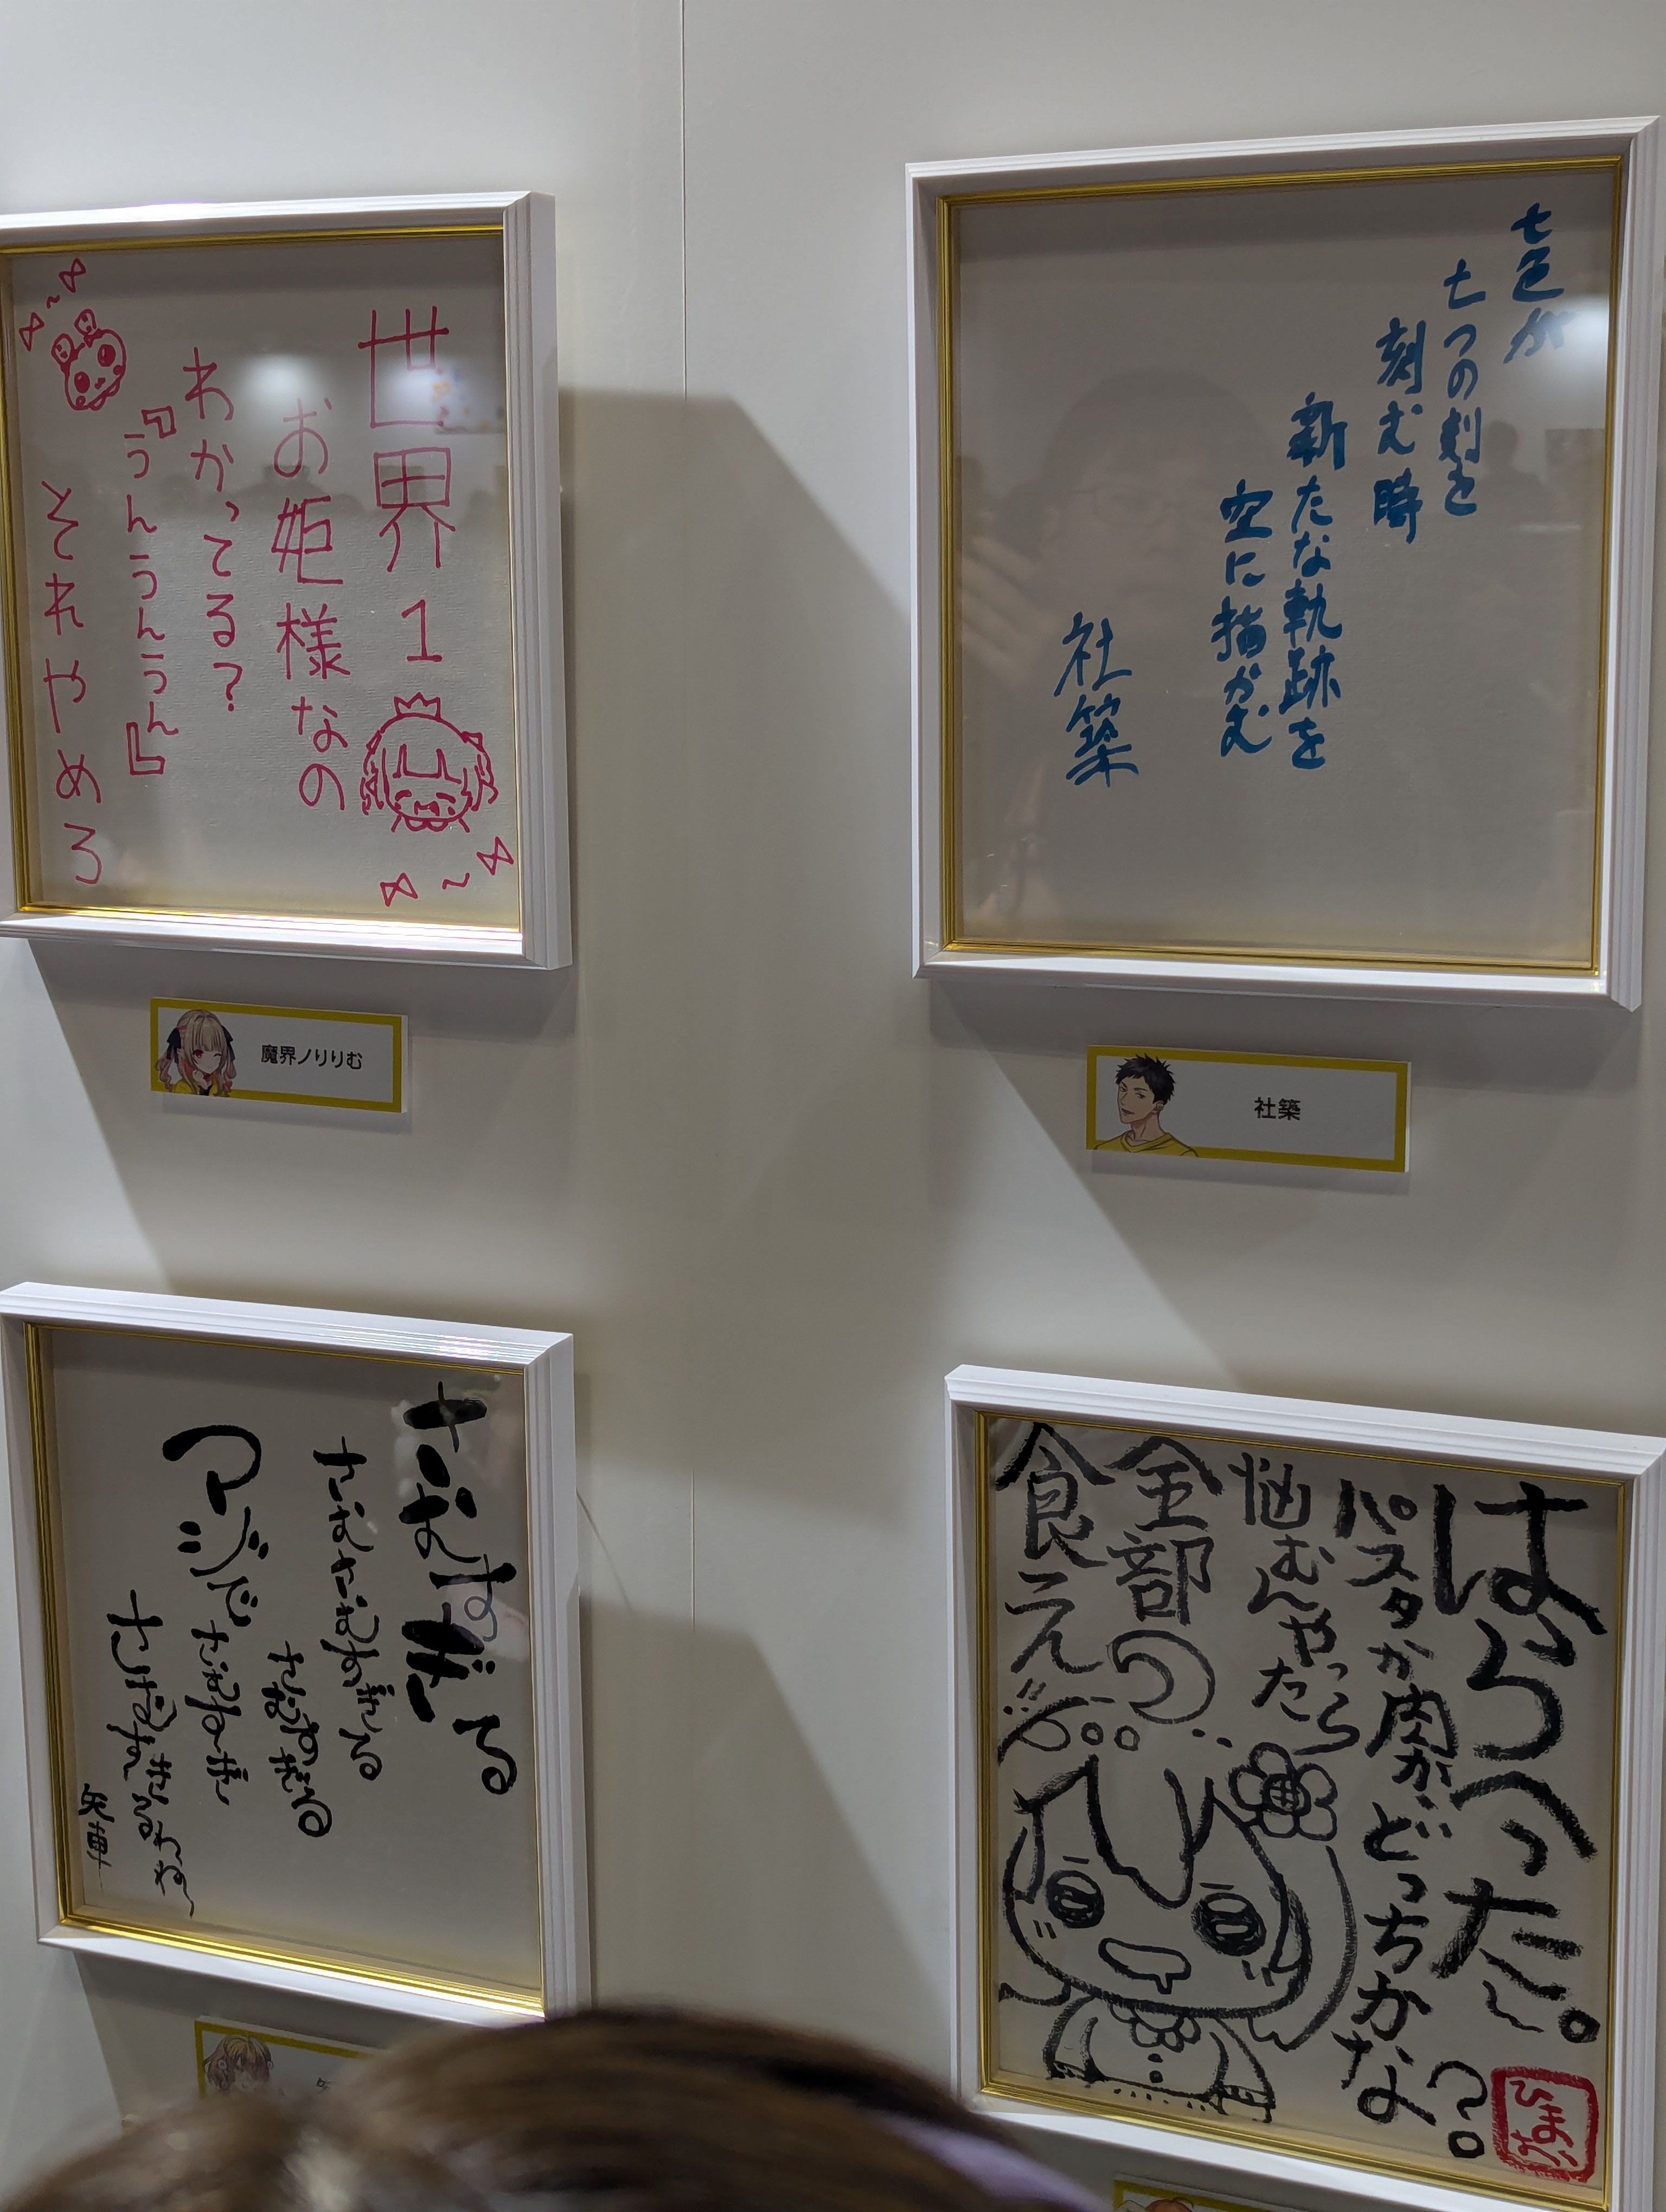 世界1
お姫様なの
わかってる?
『うんうんうん』
それやめろ
魔界ノりりむ
七色が
七つの刻を
刻む時
新たな軌跡を
空に描かむ
社築
社築
さむすぎる
さむさむすぎる
さむすぎる
マジでさむすぎ
さむすぎるわね
矢車
はらへった〜。
パスタか肉かどっちかな?。
悩むんやったら
全部の
食え!!
ひま